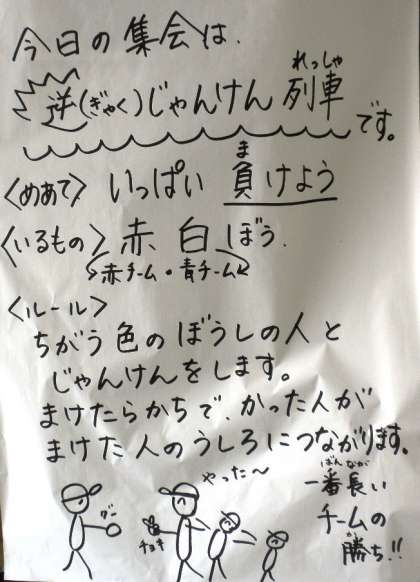 今日の集会は、
逆(ぎゃく)じゃんけん 列車です。
れっしゃ
〈めあて〉 いっぱい 負けよう
ま
〈いるもの〉 赤、白ぼう.
赤チーム・青チーム
〈ルール〉
ちがう色のぼうしの人と
じゃんけんをします。
まけたらかちで、かった人が
まけた人のうしろにつながります。
やった〜
グー
チョキ
一番長い
ばん なが
チームの
勝ち!!
か